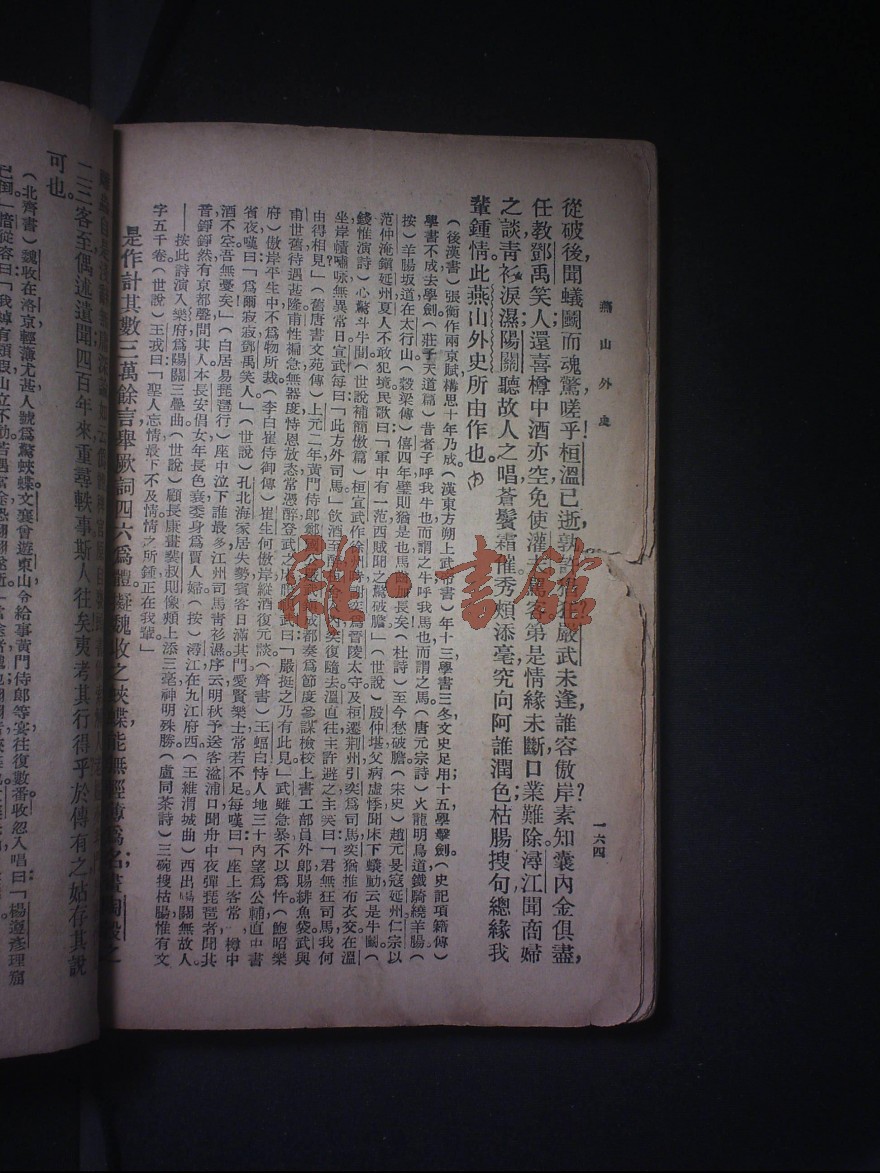 燕山外史
一六四
從破後聞蟻鬭而魂驚嗟乎桓溫已逝孰許猖狂嚴武未逢誰容傲岸素知囊內金俱盡,
任教鄧禹笑人還喜樽中酒亦空免使灌夫駡客第是情緣未斷口業難除潯江聞商婦
之談青衫淚濕陽關聽故人之唱蒼鬢霜催秀頰添毫究向阿誰潤色枯腸搜句總緣我
輩鍾情此燕山外史所由作也。
(後漢書)張衡作兩京賦構思十年乃成。(漢東方朔上武帝書)年十三學書三冬文史足用十五學擊劍。(史記項籍傳)
學書不成去學劍。(莊子天道篇)昔者子呼我牛也而謂之牛呼我馬也而謂之馬。(唐元宗詩)火龍明鳥道鐵騎繞羊腸。(
按)羊腸坂道在太行山。(穀梁傳)僖四年璧則猶是也馬齒加長矣(杜詩)至今愁破膽(宋史)趙元昊寇延州仁宗以
范仲淹鎮延州夏人不敢犯境民歌曰「軍中有一范西賊聞之驚破膽」(世說)殷仲堪父病虛悸聞床下蟻動云是牛鬭(
錢惟演詩)心驚斗牛間(世說補簡傲篇)桓宣武作徐州時謝奕爲晉陵太守及桓遷荆州引奕爲司馬奕猶推布衣交在溫
坐岸幘嘯咏無異常日宣武每曰「此方外司馬」飲酒至醉奕復隨去溫直往主許避之主奕曰「君無狂司馬我何
由得相見」(舊唐書文苑傳)上元二年黃門侍郎鄭國公嚴武鎮成都奏爲節度參謀檢校上書工部員外郎賜緋魚袋武與
甫世舊待遇甚隆甫性褊急無器度恃恩放恣常憑醉登武之床瞪視武曰「嚴挺之乃有此兒」武雖急暴不以爲忤(鮑昭樂
府)傲岸平生中不爲物所裁(李白崔侍御傳)崔生何傲岸縱酒復元談(齊書)王融自恃人地三十內望爲公輔直中書
省夜嘆曰「爲爾寂寂鄧禹笑人」(世說)孔北海家居失勢賓客日滿其門愛賢樂士常若不足每嘆曰「座上客常樽中
酒不空吾無憂矣」(白居易琵琶行)座中泣下誰最多江州司馬青衫濕序云明秋予送客湓浦口聞舟中夜彈琵琶者聞其
音錚錚然有京都聲問其人本長安倡女年長色衰委身爲賈人婦(按)潯江在九江府西(王維渭城曲)西出陽關無故人。
——按此詩演入樂府爲陽關三疊曲(世說)顧長康畫裴叔則像頰上添三毫神明殊勝(盧同茶詩)三碗搜枯腸惟有文
字五千卷(世說)王戎曰「聖人忘情最下不及情情之所鍾正在我輩」
是作計其數三萬餘言舉厥詞四六爲體擬魏收之蛺蝶能無輕薄爲名
二三客至偶述遺聞四百年來重尋軼事斯人往矣夷考其行得乎於傳有之姑存其說
可也。
(北齊書)魏收在洛京輕薄尤甚人號爲驚蛺蝶文襄曾遊東山令給事黃門侍郎等宴往復數番收忽入唱曰「楊遵彥理窟
雜·書館